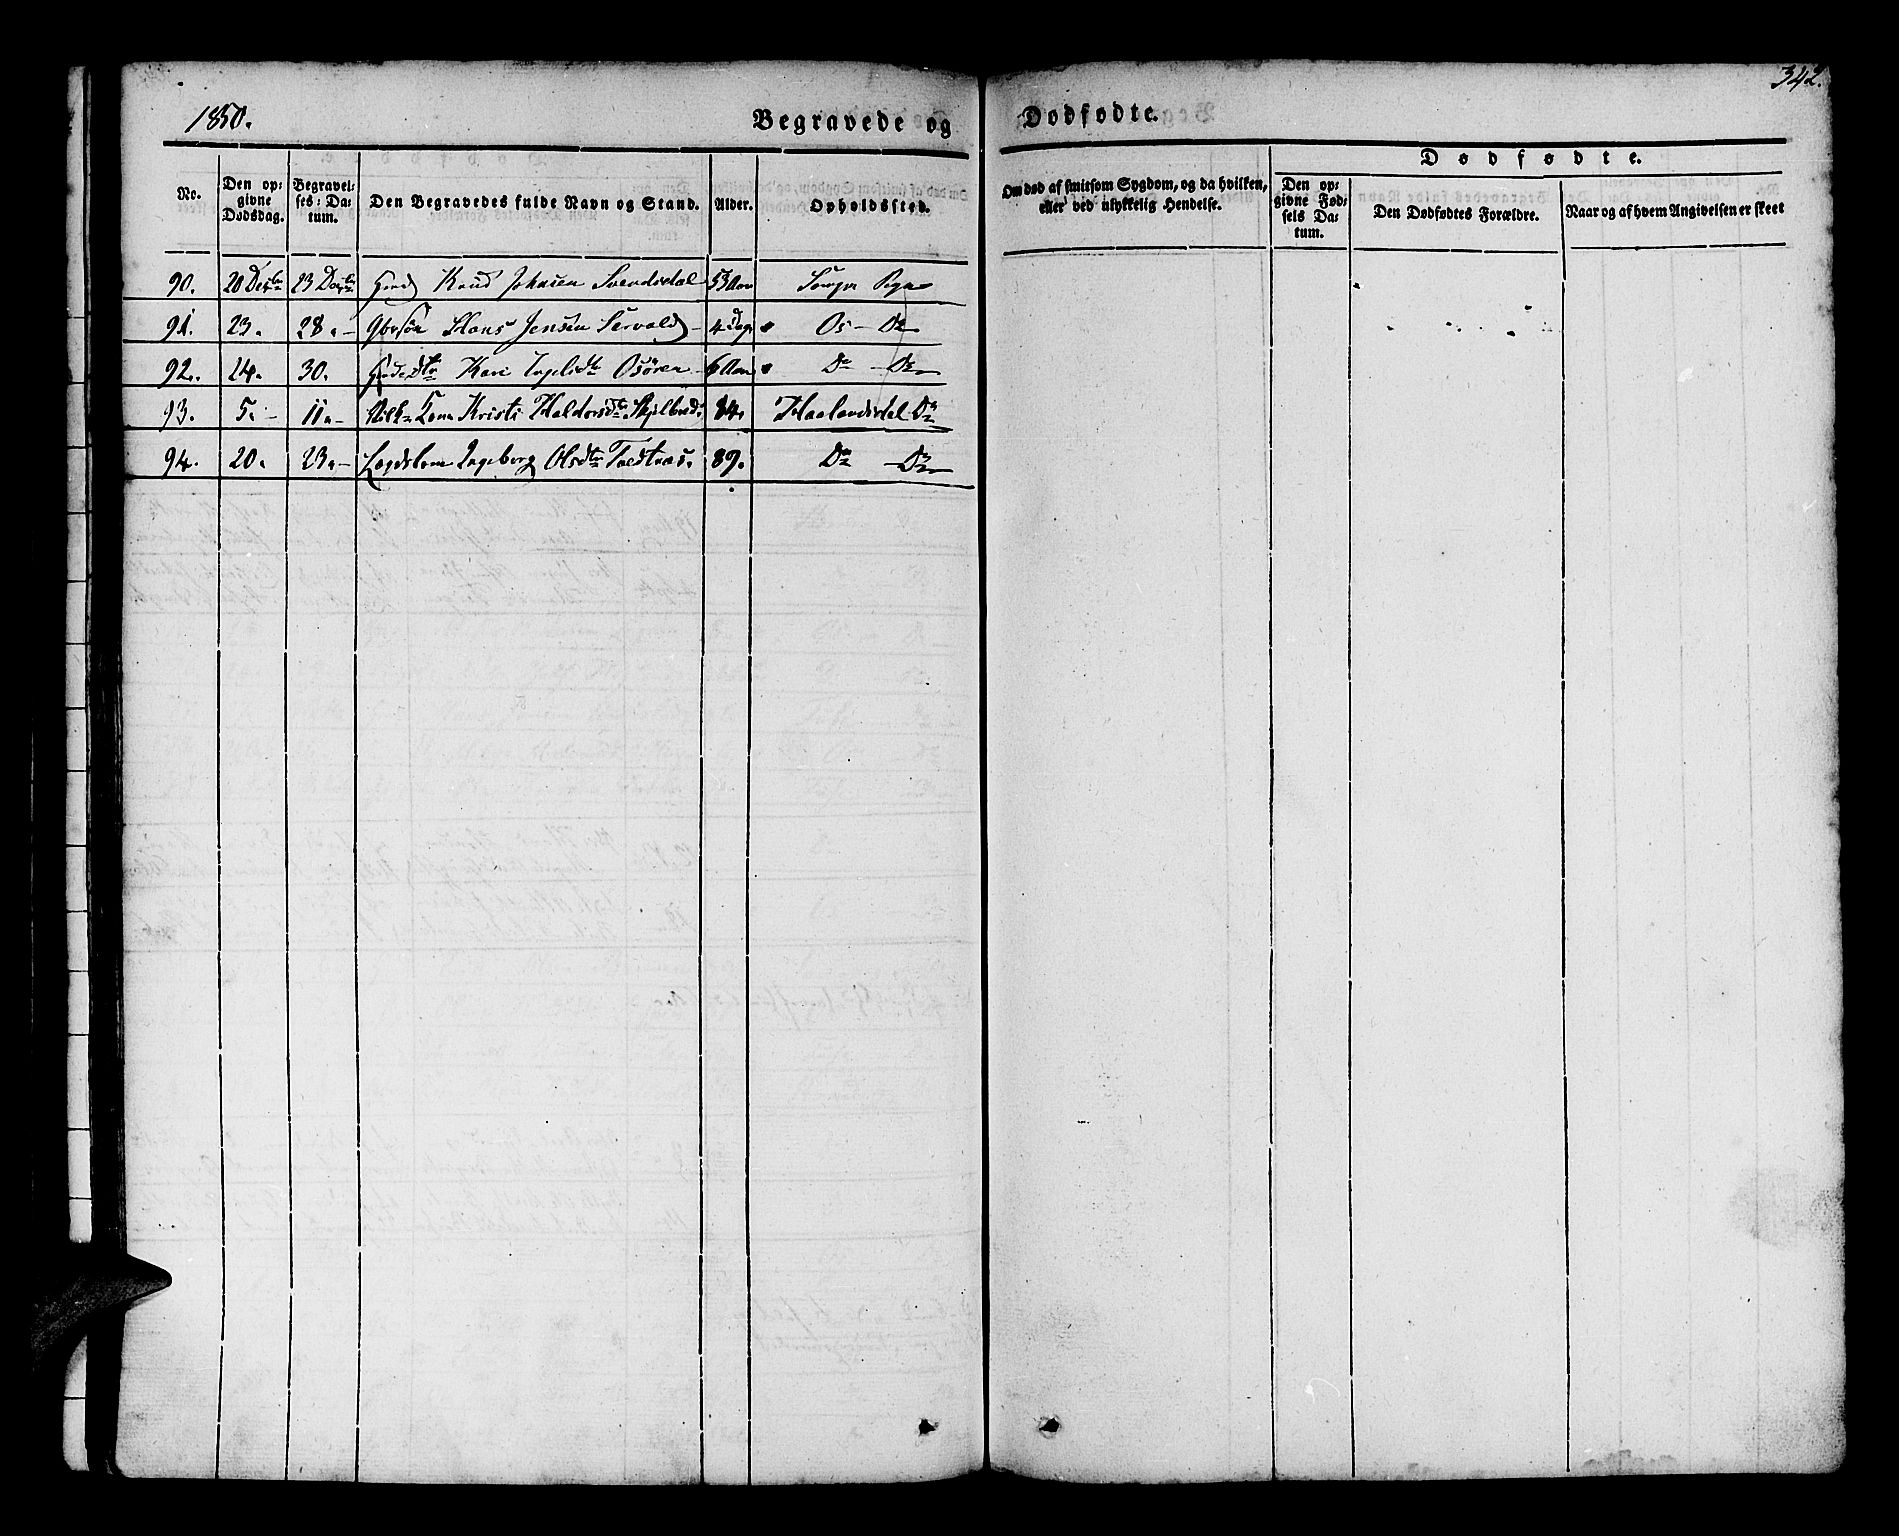 342.
1850. Begravede og Dødfødte.
No.
Den opgivne Dødsdag.
Begravelses-Datum.
Den Begravedes fulde Navn og Stand.
Alder.
Opholdssted.
Om død af smitsom Sygdom, og da hvilken, eller ved ulykkelig Hendelse.
Dødfødte.
Den opgivne Fødsels Datum.
Den Dødfødtes Forældre.
Naar og af hvem Angivelsen er skeet
90. 20 Decbr 23 Decbr Knud Johnsen Svendsdal 53 Aar Sogn
91. 23. 28. – Hans Jensen 4 Dage Os – Do
92. 24. 30. Kari Osøren – 6 Aar Do – Do
93. 5. – 11. – Kone Kristi Haldorsdtr 84. Haalandsdal Do
94. 20. 23. – Lægdslem Ingeborg Olsdtr 89. Do – Do